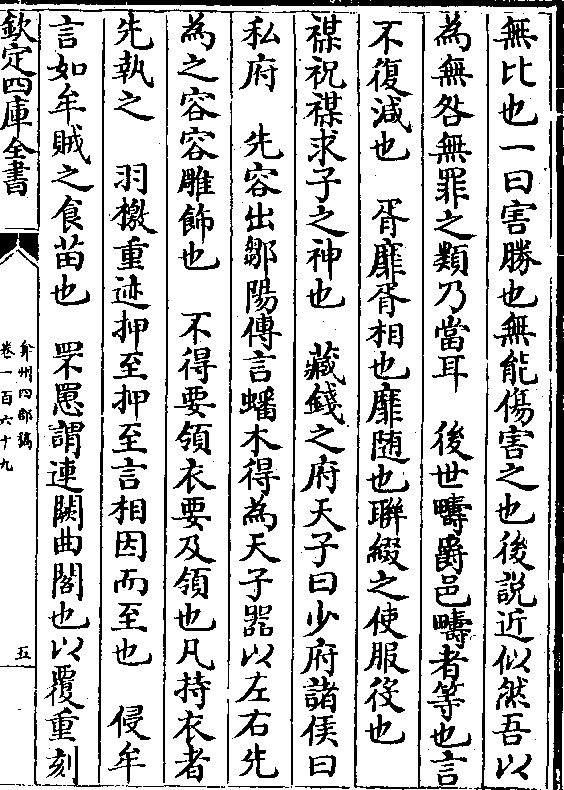 無比也一曰害勝也無能傷害之也後說近似然吾以
為無咎無罪之類乃當耳　後世疇爵邑疇者等也言
不復減也　胥靡胥相也靡随也聯綴之使服役也
禖祝禖求子之神也　藏錢之府天子曰少府諸侯曰
私府　先容出鄒陽傳言蟠木得為天子器以左右先
為之容容雕飾也　不得要領衣要及領也凡持衣者
先執之　羽檄重迹押至押至言相因而至也　侵牟
言如牟賊之食苗也　罘罳謂連闕曲閣也以覆重刻
欽定四庫全書
弇州四部稿
卷一百六十九
五